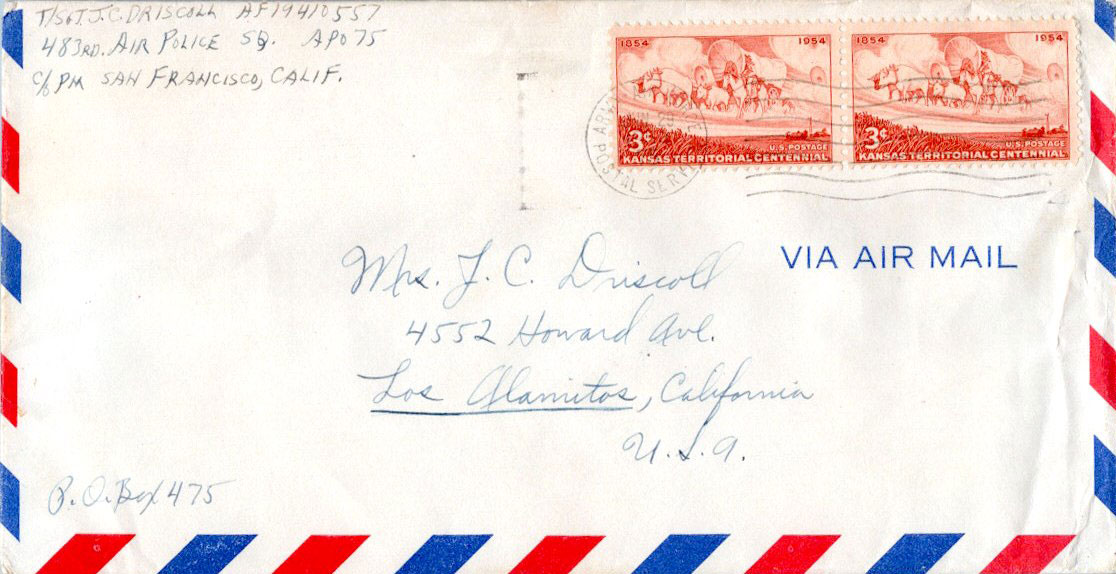 T/SGT. J.C. DRISCOLL AF19410557
483RD. AIR POLICE SQ. APO 75
C/O PM SAN FRANCISCO, CALIF.
1854 1954
3¢
U.S. POSTAGE
KANSAS TERRITORIAL CENTENNIAL
1854 1954
3¢
U.S. POSTAGE
KANSAS TERRITORIAL CENTENNIAL
POSTAL SERVICE
VIA AIR MAIL
Mrs. J. C. Driscoll
4552 Howard Ave.
Los Alamitos, California
U.S.A.
P.O. Box 475